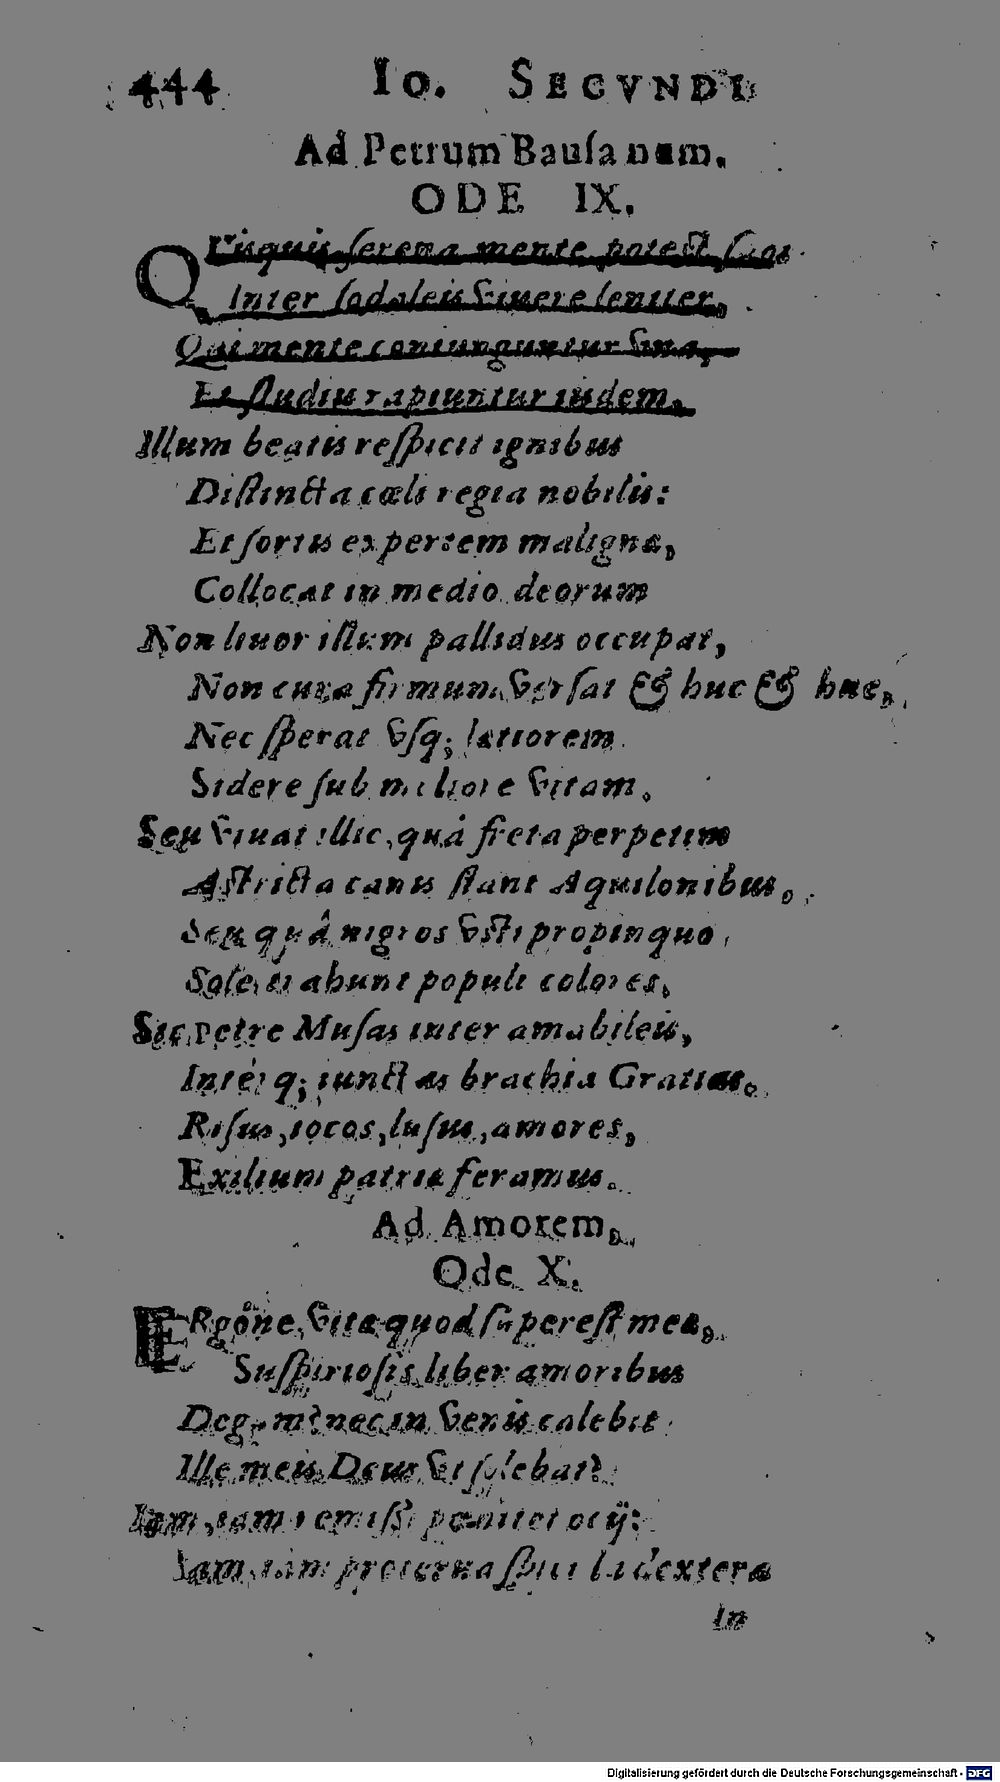 444 Io. SECVNDI
Ad Petrum Bauſanum.
ODE IX.
QViſquis ſerena mente poteſt ſuos
Inter ſodaleis viuere leniter,
Qui mente coniunguntur vna,
Et ſtudiis rapiuntur iisdem.
Illum beatis reſpicit ignibus
Diſtincta cœli regia nobilis:
Et ſortis expertem malignæ,
Collocat in medio deorum
Non liuor iſtum pallidus occupat,
Non cura firmum verſat & huc & huc,
Nec ſperat vſq; lætiorem
Sidere ſub meliore vitam.
Seu viuat illic, quà freta perpetim
Aſtricta canis ſtant Aquilonibus,
Seu quâ nigros vſti propinquo
Sole trahunt populi colores,
Sic Petre Muſas inter amabileis,
Intérq; iunctas brachia Gratias,
Riſus, iocos, luſus, amores,
Exilium patriæ feramus.
Ad Amorem,
Ode X.
ERgóne, vitæ quod ſupereſt meæ,
Suſpirioſis liber amoribus
Degam? nec in venis calebit
Ille meis Deus vt ſolebat?
Iam, iam remiſſi pœnitet ocij:
Iam, iam proterua ſpicula dexteræ
In
Digitalisierung gefördert durch die Deutsche Forschungsgemeinschaft - DFG